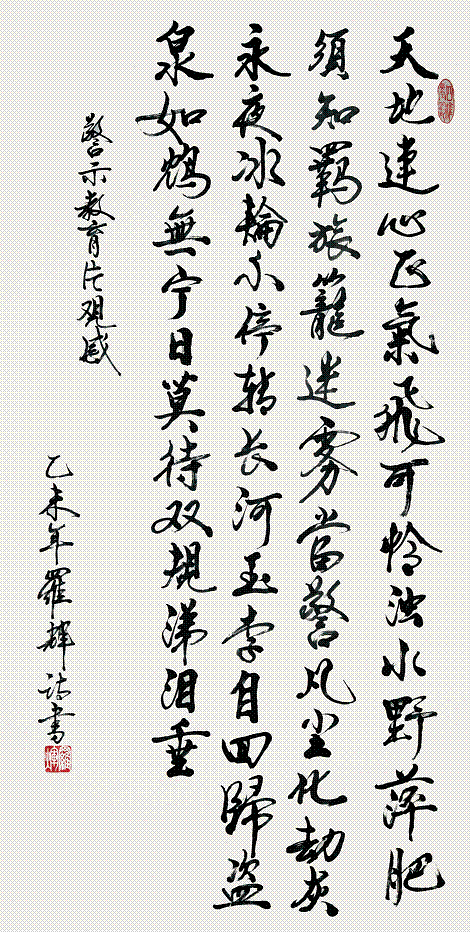 天地連心正氣飛可怜浊水野萍肥
須知羈旅籠迷雾當警凡尘化劫灰
永夜冰輪不停轉长河玉李自回歸盗
泉如鴆無宁日莫待双規涕泪垂
警示教育片观感
乙未年羅輝诗書